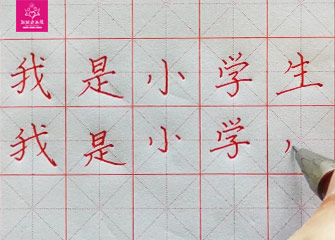 我是小学生
我是小学